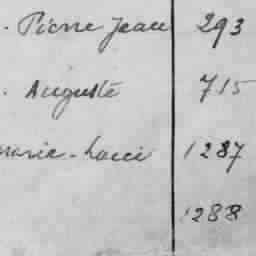 . Pierre Jean 293
. Auguste 715
Marie-Louis 1287
1288